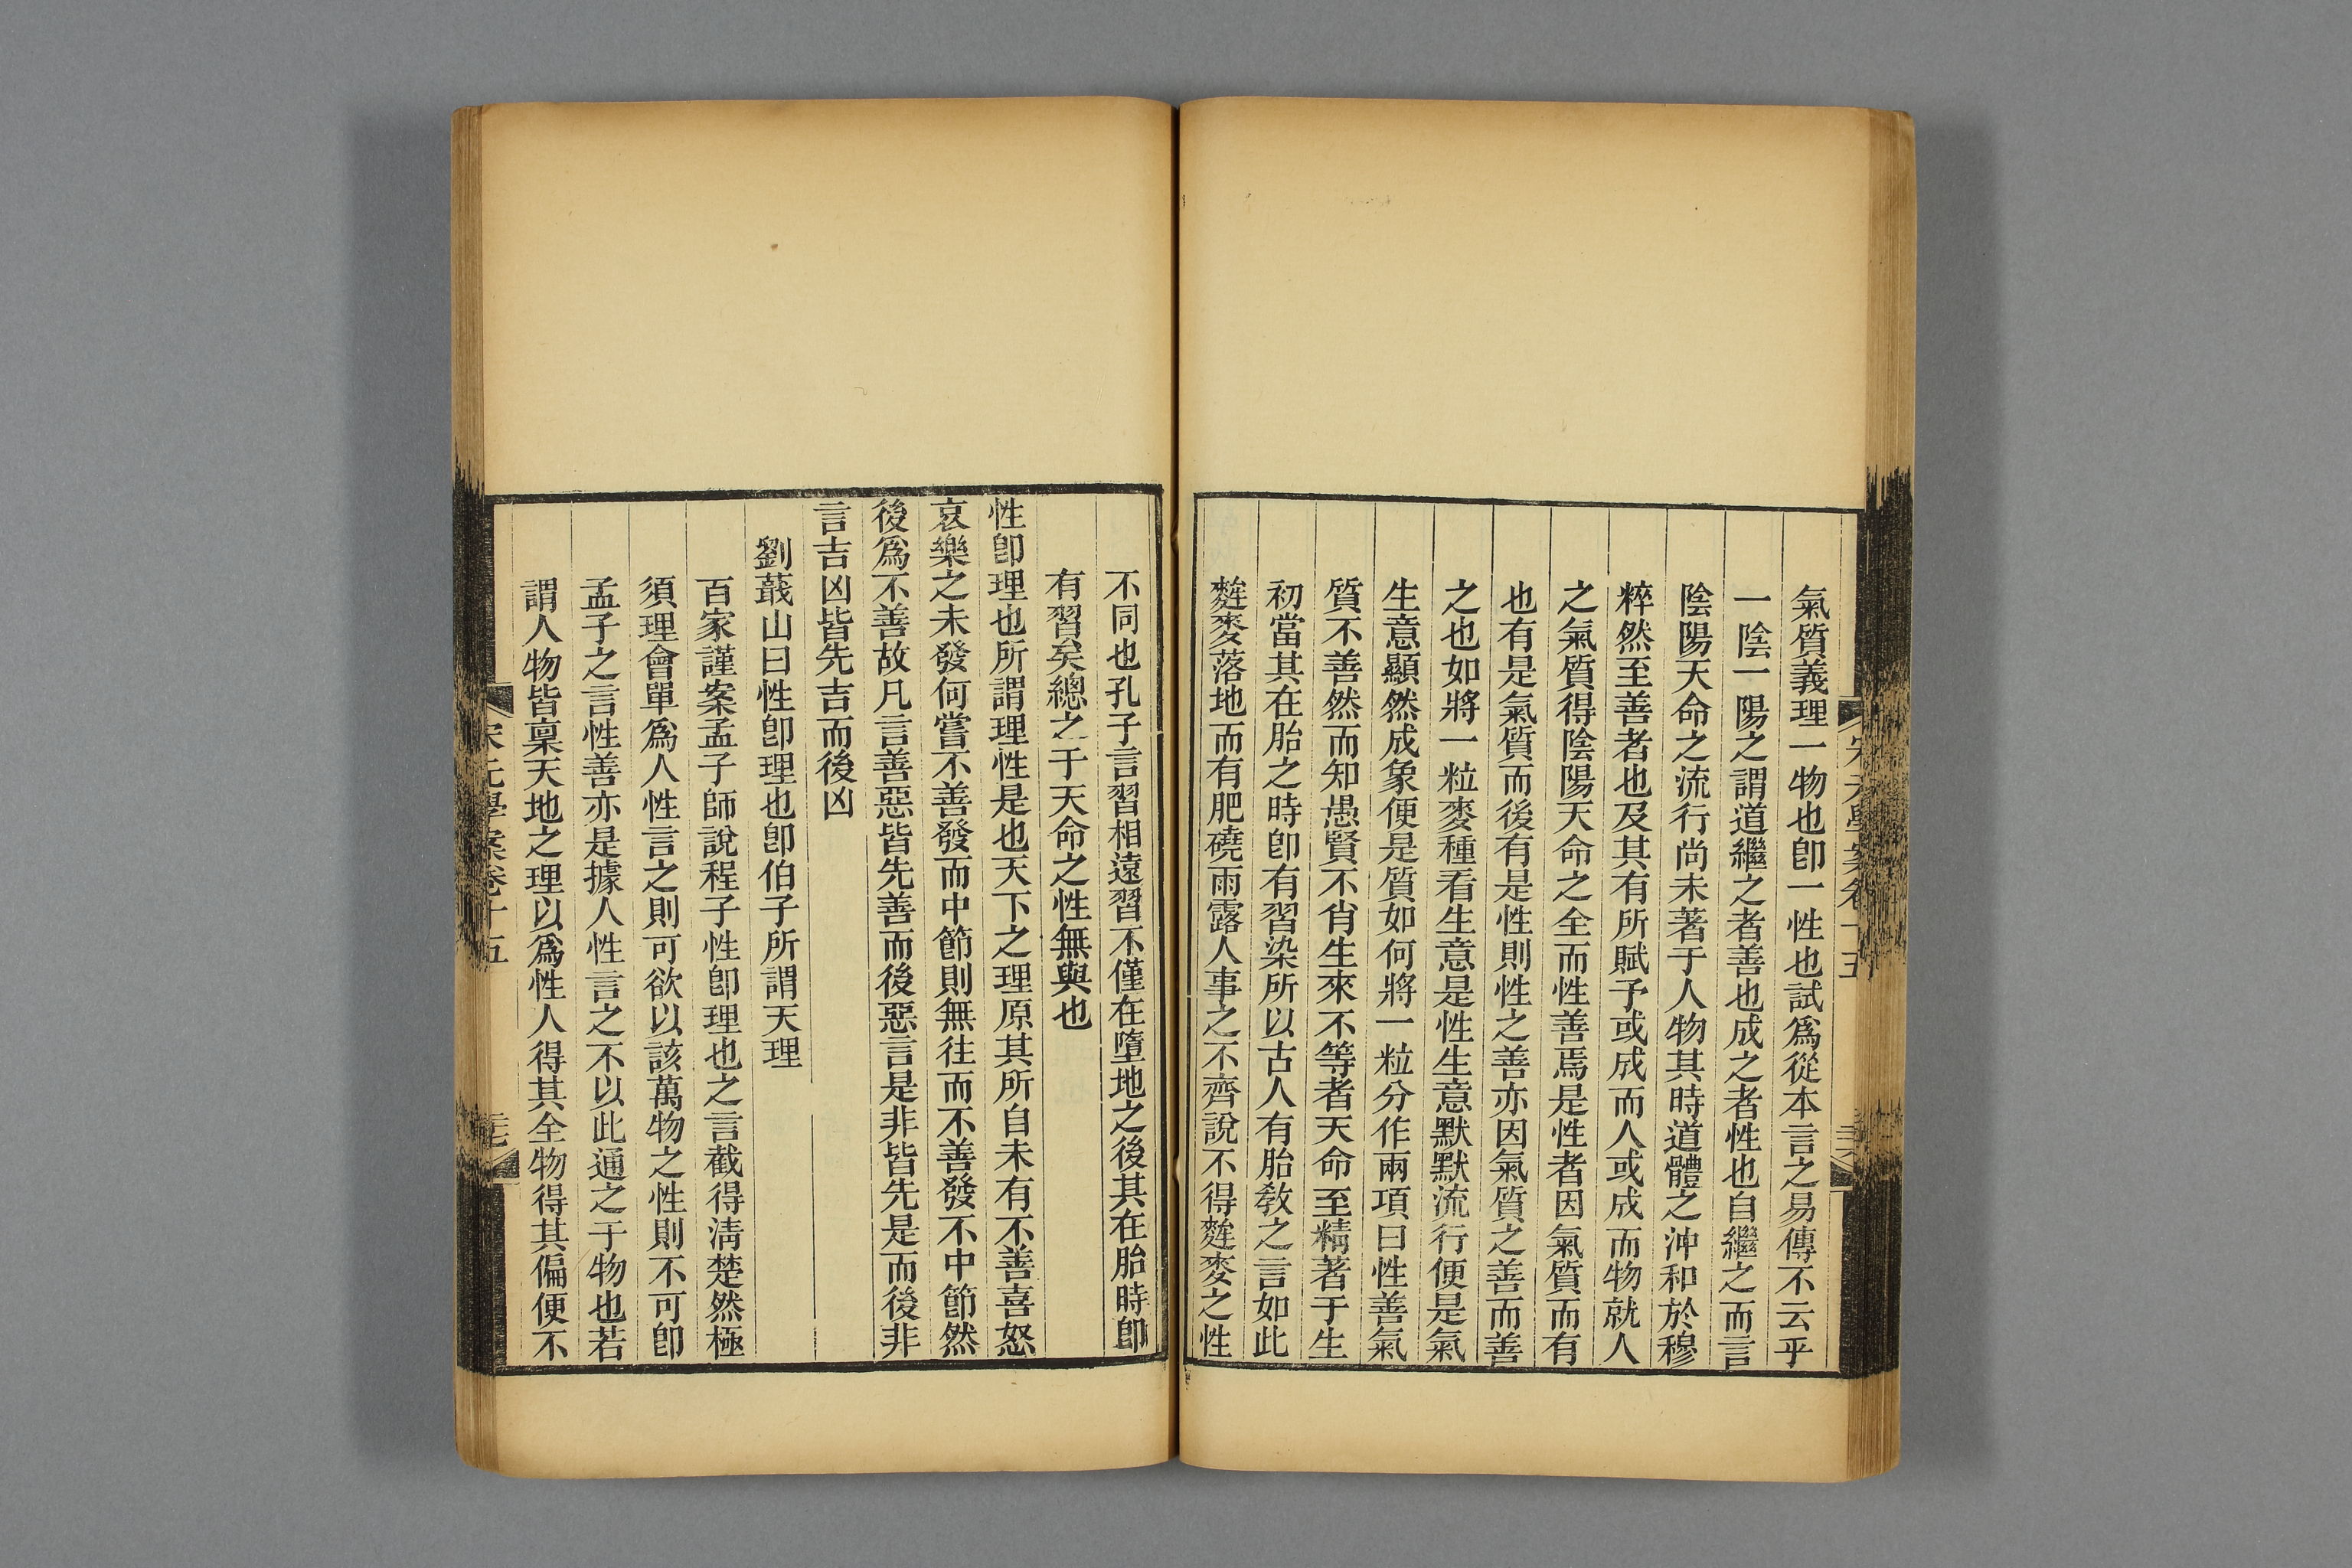 氣質義理一物也卽一性也試爲從本言之易傳不云乎
一陰一陽之謂道繼之者善也成之者性也自繼之而言
陰陽天命之流行尚未著于人物其時道體之沖和於穆
粹然至善者也及其有所賦予或成而人或成而物就人
之氣質得陰陽天命之全而性善焉是性者因氣質而有
也有是氣質而後有是性則性之善亦因氣質之善而善
之也如將一粒麥種看生意是性生意默默流行便是氣
生意顯然成象便是質如何將一粒分作兩項曰性善氣
質不善然而知愚賢不肖生來不等者天命至精著于生
初當其在胎之時卽有習染所以古人有胎敎之言如此
麰麥落地而有肥磽雨露人事之不齊說不得麰麥之性
宋元學案卷十五
不同也孔子言習相遠習不僅在墮地之後其在胎時卽
有習矣總之于天命之性無與也
性卽理也所謂理性是也天下之理原其所自未有不善喜怒
哀樂之未發何嘗不善發而中節則無往而不善發不中節然
後爲不善故凡言善惡皆先善而後惡言是非皆先是而後非
言吉凶皆先吉而後凶
劉蕺山曰性卽理也卽伯子所謂天理
百家謹案孟子師說程子性卽理也之言截得淸楚然極
須理會單爲人性言之則可欲以該萬物之性則不可卽
孟子之言性善亦是據人性言之不以此通之于物也若
謂人物皆稟天地之理以爲性人得其全物得其偏便不
宋元學案卷十五